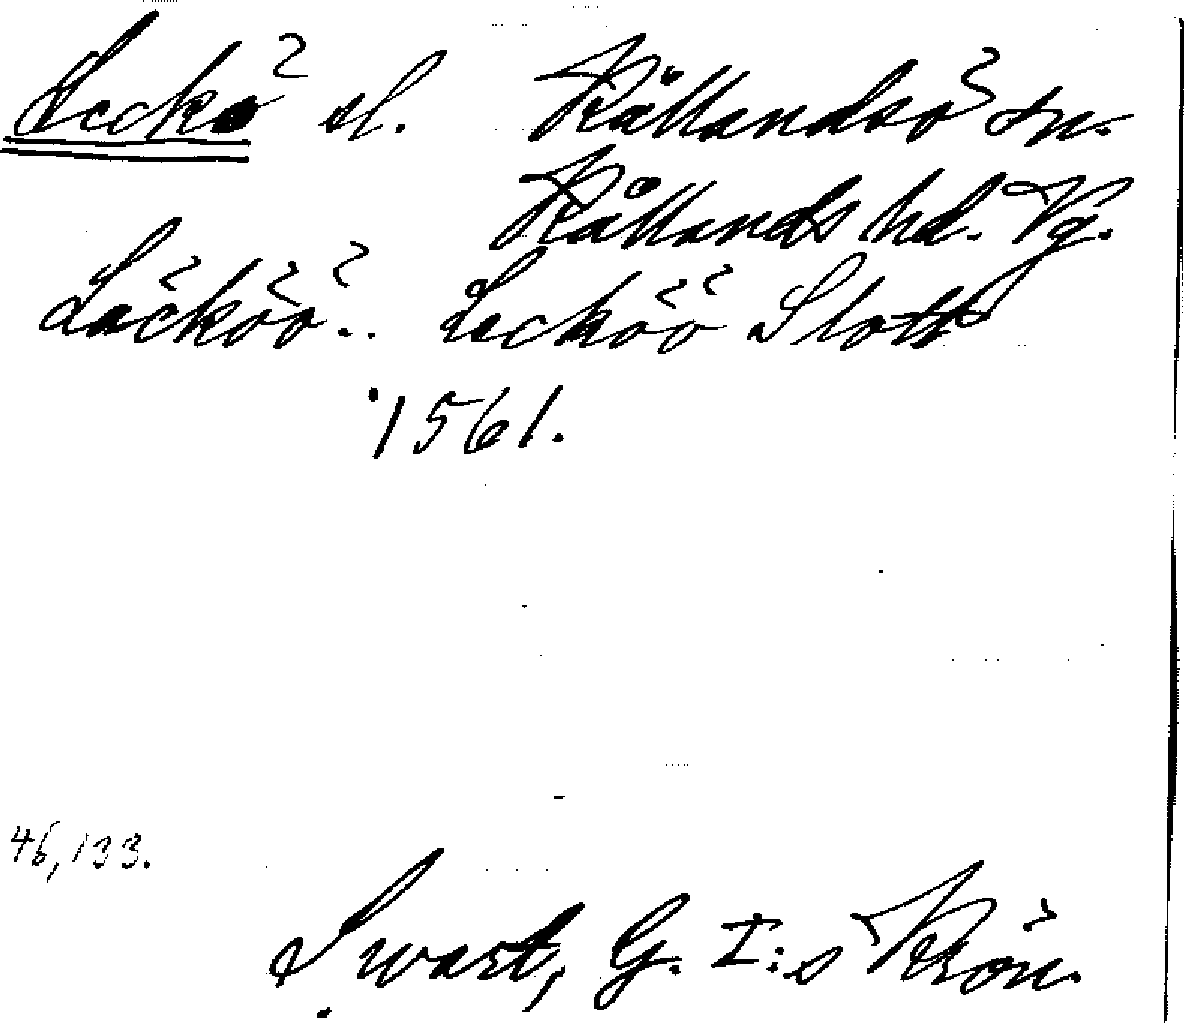 Leckö sl. Kållandsö sn.
Kållands hd. Vg.
Läcköö.. Lecköö Slott
1561.
46, 133.
Swart, G. I:s Krön.